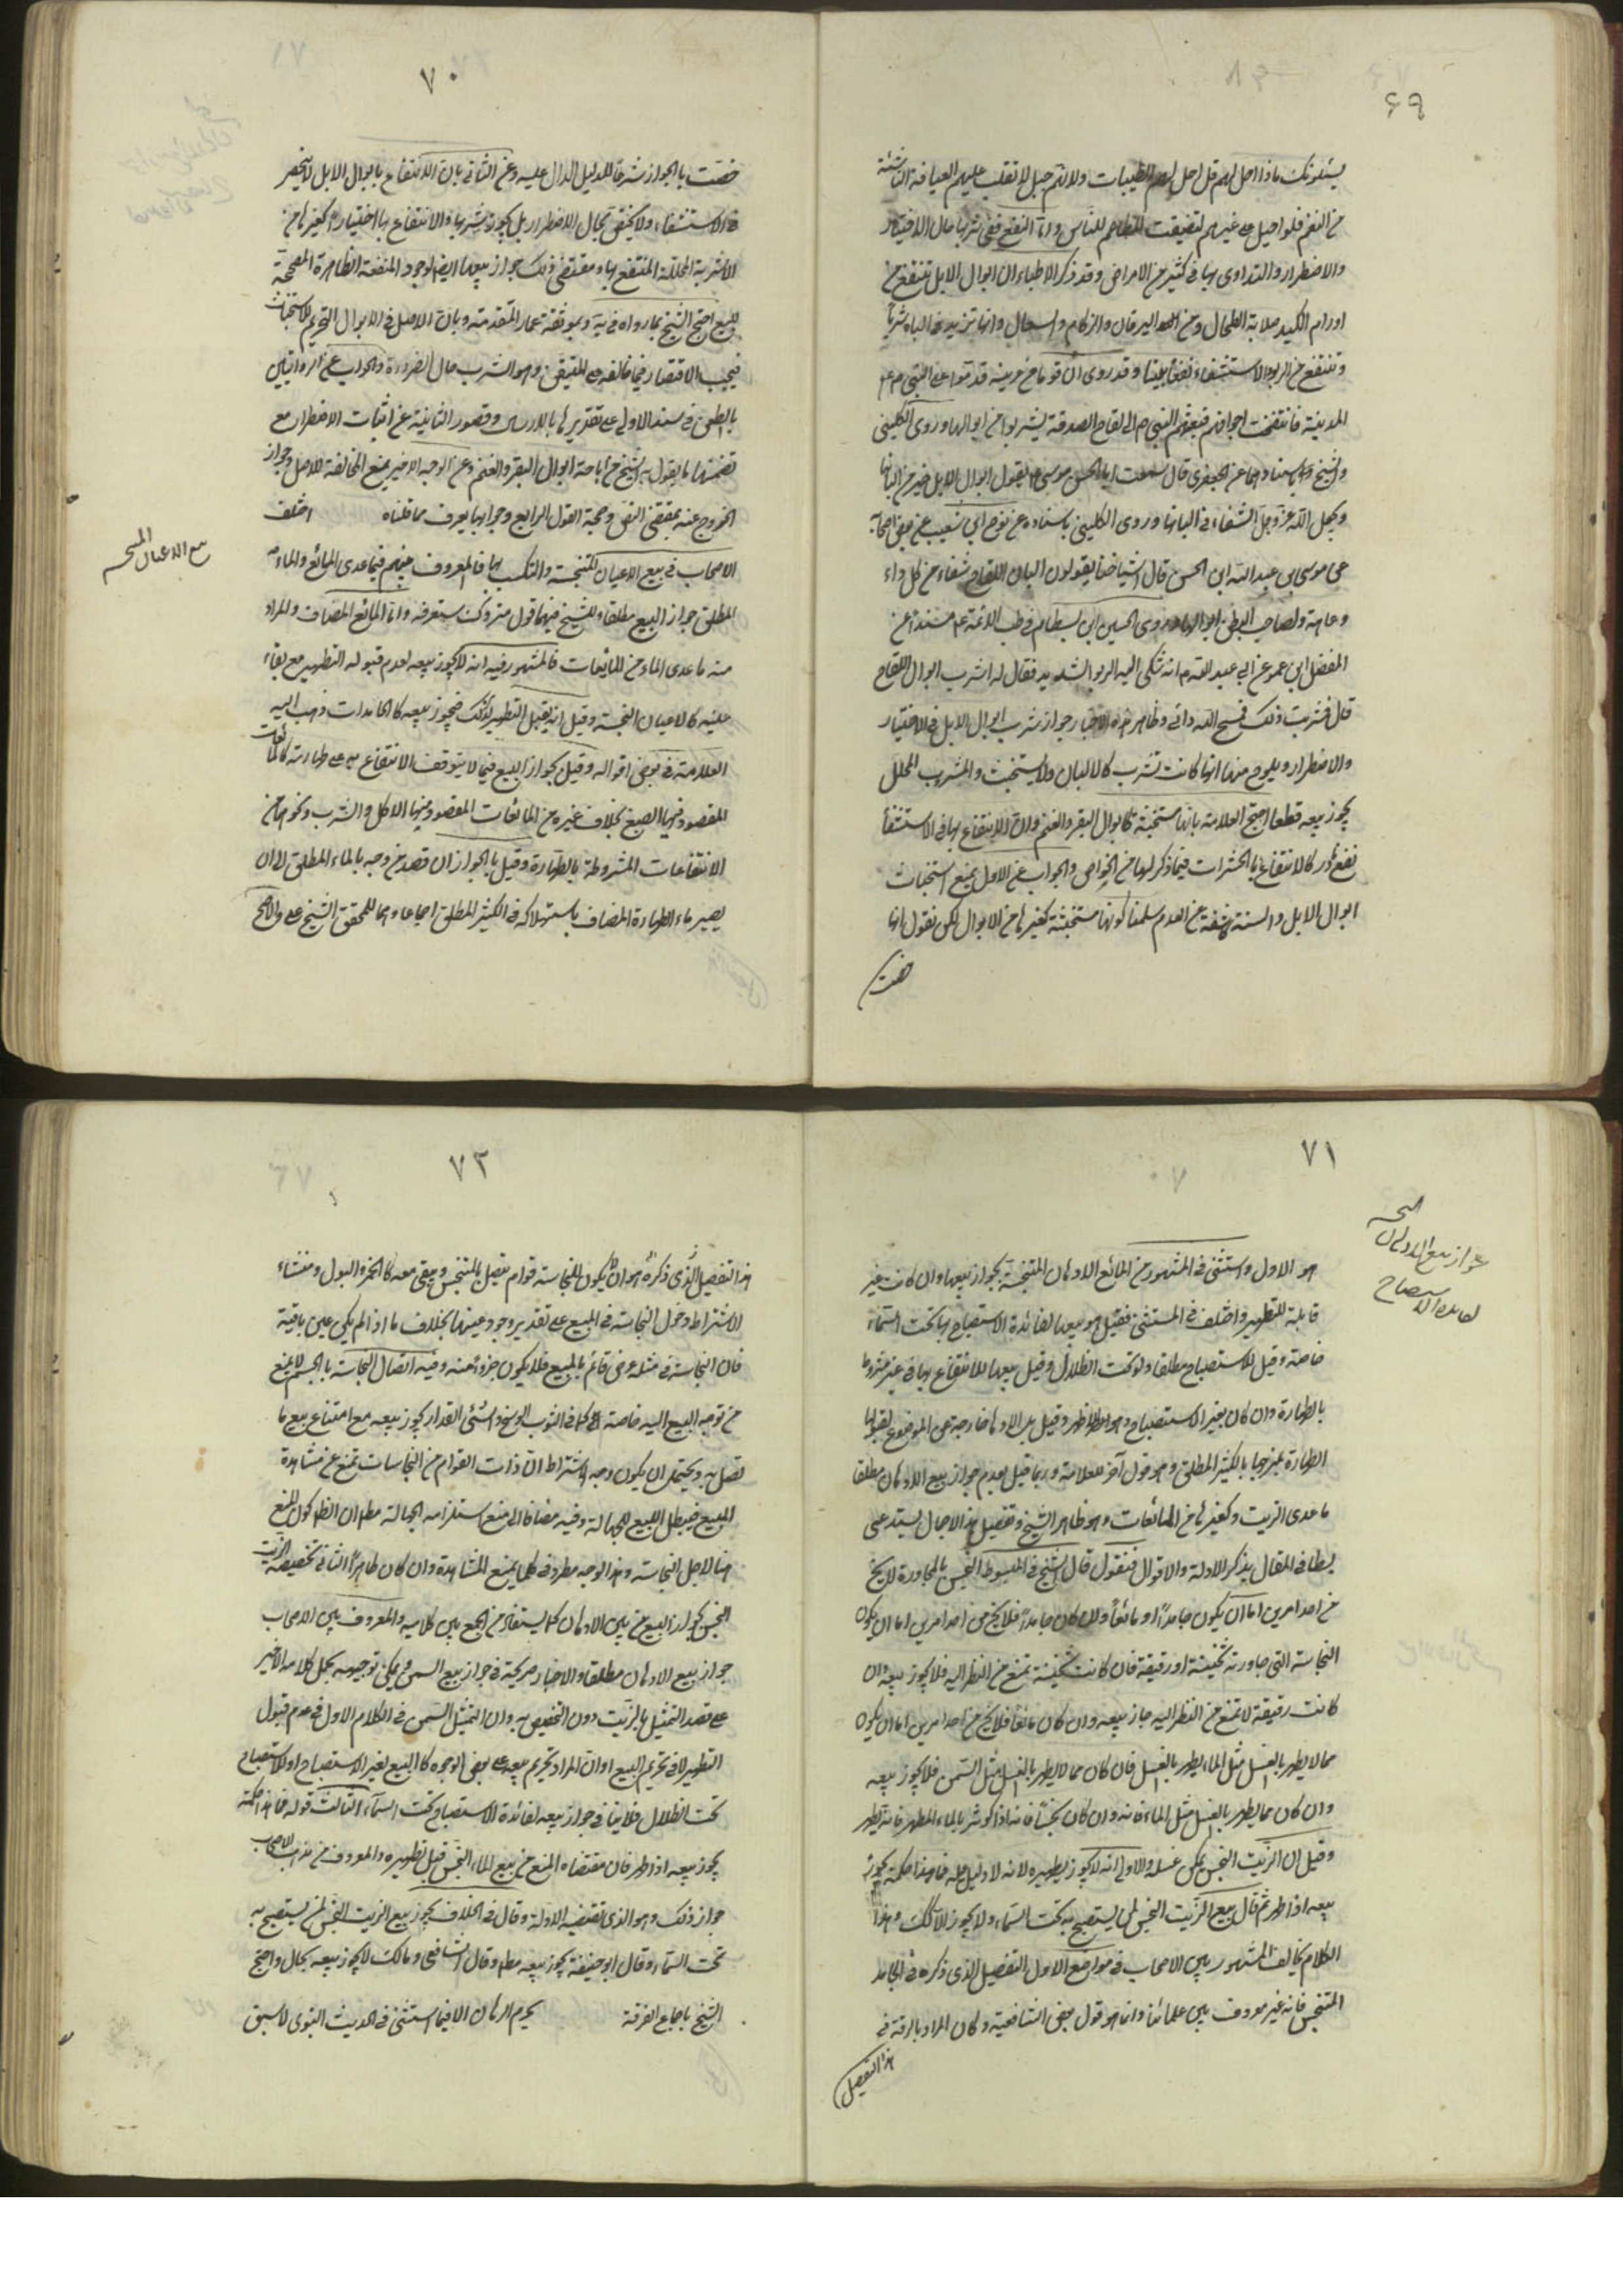 ۶۹
يسئلونك ماذا احل لهم قل احل لهم الطيبات ولانهم جبل الاغلب عليهم العيافة الناشئة
من النعم فلو احيل على غيرهم لتضيقت المطاعم للناس واما النفع ففي شربها حال الاختيار
والاضطرار والتداوى بها فى كثير من الامراض وقد ذكر الاطباء ان ابوال الابل تنفع من
اورام الكبد وصلابة الطحال ومن اليرقان والزكام والسعال وانها تزيد فى الباه شربا
وتنفع من الربو والاستسقاء نفعا بليغا وقد روى ان قوما من عرينة قدموا على النبى ص
المدينة فانتفخت اجوافهم فبعثهم النبى ص الى لقاح الصدقة ليشربوا من ابوالها وروى الكلينى
والشيخ باسنادهما عن الجعفرى قال سمعت ابا الحسن موسى ع يقول ابوال الابل خير من البانها
ويجعل الله عز وجل الشفاء فى البانها وروى الكلينى باسناده عن نوح ابى شعيب عن بعض اصحابه
عن موسى بن عبد الله ابن الحسن قال اشياخنا يقولون البان اللقاح شفاء من كل داء
وعاهة ولصاحب البطن ابوالها وروى الحسين ابن بسطام فى طب الائمة ع مسندا عن
المفضل ابن عمر عن ابى عبد الله ع انه شكى اليه الربو الشديد فقال له اشرب ابوال اللقاح
قال فشربت ذلك فمسح الله دائى وظاهر هذه الاخبار جواز شرب ابوال الابل فى الاختيار
والاضطرار ويلوح منها انها كانت تشرب كالالبان ولا يستخبث والمشروب المحلل
يجوز بيعه قطعا احتج العلامة بانها مستخبثة كابوال البقر والغنم وان الانتفاع بها فى الاستشفاء
نفع نادر كالانتفاع بالحشرات فيما ذكر لها من الخواص والجواب عن الاول بمنع استخباث
ابوال الابل والسنة كاشفة عن العدم سلمنا كونها مستخبثة كغيرها من الابوال لكن نقول انها
خصت
۷۰
خصت بالجواز شرعا للدليل الدال عليه وعن الثانى بان الانتفاع بابوال الابل لا ينحصر
فى الاستشفاء ولا يختص بحال الاضطرار بل يجوز شربها والانتفاع بها اختيارا كغيرها من
الاشربة المحللة المنتفع بها ومقتضى ذلك جواز بيعها ايضا لوجود المنفعة الظاهرة المصححة
للبيع احتج الشيخ بما رواه فى يه وبموثقة عمار المتقدمة وبان الاصل فى الابوال التحريم للاستخباث
فيجب الاقتصار فيما خالفه على المتيقن وهو الشرب حال الضرورة والجواب عن الروايتين
بالطعن فى سند الاولى على تقديرها بالارسال وقصور الثانية عن اثبات الاضطرار مع
تضمنها ما يقول به الشيخ من اباحة ابوال البقر والغنم وعن الوجه الاخير بمنع المخالفة للاصل وجواز
الخروج عنه بمقتضى النص وحجة القول الرابع وجوابها يعرف مما قلناه اختلف
بيع الاعيان المتنجسه
الاصحاب فى بيع الاعيان المتنجسة والتكسب بها فالمعروف بينهم فيما عدى المائع والماء
المطلق جواز البيع مطلقا وللشيخ فيهما قول متروك ستعرفه واما المائع المضاف والمراد
منه ما عدى الماء من المائعات فالمشهور فيه انه لا يجوز بيعه لعدم قبوله التطهير مع بقاء
عينه كالاعيان النجسة وقيل انه يقبل التطهير بذلك فيجوز بيعه كالجامدات وذهب اليه
العلامة فى بعض اقواله وقيل بجواز البيع فيما لا يتوقف الانتفاع به على طهارته كالمائعات
المقصود منها الصبغ بخلاف غيره من المائعات المقصود منها الاكل والشرب ونحوهما من
الانتفاعات المشروطة بالطهارة وقيل بالجواز ان قصد مزجه بالماء المطلق الى ان
يصير ماء لطهارة المضاف باستهلاكه فى الكثير المطلق اجماعا وهما للمحقق الشيخ على والاصح
۷۱
جواز بيع الادهان النجسه
لفائدة الاستصباح
هو الاول واستثنى فى المشهور من المائع الادهان المتنجسة فيجوز بيعها وان كانت غير
قابلة للتطهير واختلف فى المستثنى فقيل هو بيعها لفائدة الاستصباح بها تحت السماء
خاصة وقيل للاستصباح مطلقا ولو تحت الظلال وقيل بيعها للانتفاع بها فى غير مشروط
بالطهارة وان كان بغير الاستصباح وهو الاظهر وقيل بل الادهان خارجة عن الموضوع لقبولها
الطهارة بمزجها بالكثير المطلق وهو قول آخر للعلامة وربما قيل بعدم جواز بيع الادهان مطلقا
ما عدى الزيت وكغيرها من المائعات وهو ظاهر الشيخ وتفصيل هذا الاجمال يستدعى
بسطا فى المقال بذكر الادلة والاقوال فنقول قال الشيخ فى المبسوط النجس بالمجاورة لا يخلو
من احد امرين اما ان يكون جامدا او مائعا فان كان جامدا فلا يخلو من احد امرين اما ان يكون
النجاسة التى جاورته ثخينة او رقيقة فان كانت ثخينة تمنع من النظر اليه فلا يجوز بيعه وان
كانت رقيقة لا تمنع من النظر اليه جاز بيعه وان كان مائعا فلا يخلو من احد امرين اما ان يكون
مما لا يطهر بالغسل مثل الماء يطهر بالغسل فان كان مما لا يطهر بالغسل مثل السمن فلا يجوز بيعه
وان كان مما يطهر بالغسل مثل الماء فانه وان كان نجسا فانه اذا كوثر بالماء المطهر فانه يطهر
وقيل ان الزيت النجس يمكن غسله والاولى انه لا يجوز تطهيره لانه لا دليل عليه فما هذا حكمه يجوز
بيعه اذا طهر ثم قال بيع الزيت النجس لمن يستصبح به تحت السماء ولا يجوز الا كذلك وهذا
الكلام يخالف المشهور بين الاصحاب فى مواضع الاول التفصيل الذى ذكره فى الجامد
المتنجس فانه غير معروف بين علمائنا وانما هو قول بعض الشافعية وكان المراد بالرقة فى
هذا التفصيل
۷۲
هذا التفصيل الذى ذكره هو ان لا يكون للنجاسة قوام يتصل بالمتنجس ويبقى معه كالخمر والبول ومنشاء
الاشتراط دخول النجاسة فى المبيع على تقدير وجود عينها بخلاف ما اذا لم يكن عين باقية
فان النجاسة فى مثله عرض قائم بالمبيع فلا يكون جزء منه وفيه اتصال النجاسة بالجسم لا يمنع
من توجه البيع اليه خاصة كما فى الثوب الوسخ والشئ القذر يجوز بيعه مع امتناع بيع ما
تصل به ويحتمل ان يكون وجه الاشتراط ان ذات القوام من النجاسات تمنع عن مشاهدة
المبيع فيبطل البيع للجهالة وفيه مضافا الى منع استلزامه الجهالة مطم ان الظم كون المنع
هنا لاجل النجاسة وهذا الوجه مطرد فى كلما يمنع المشاهدة وان كان طاهرا الثانى تخصيصه الزيت
النجس بجواز البيع من بين الادهان كما يستفاد من الجمع بين كلاميه والمعروف بين الاصحاب
جواز بيع الادهان مطلقا والاخبار صريحة فى جواز بيع السمن ويمكن توجيهه بحمل كلامه الاخير
على قصد التمثيل بالزيت دون التخصيص به وان التمثيل بالسمن فى الكلام الاول فى عدم قبول
التطهير لا فى تحريم البيع او ان المراد تحريم بيعه على بعض الوجوه كالبيع لغير الاستصباح او للاستصباح
تحت الظلال فلا ينافى جواز بيعه لفائدة الاستصباح تحت السماء الثالث قوله فما هذا حكمه
يجوز بيعه اذا طهر فان مقتضاه المنع من بيع الماء النجس قبل تطهيره والمعروف من مذهب الاصحاب
جواز ذلك وهو الذى تقتضيه الادلة وقال فى الخلاف يجوز بيع الزيت النجس لمن يستصبح به
تحت السماء وقال ابو حنيفة يجوز بيعه مطم وقال الشافعى ومالك لا يجوز بيعه بحال واحتج
الشيخ باجماع الفرقة يحرم الادهان الا فيما استثنى فى الحديث النبوى لا سبق